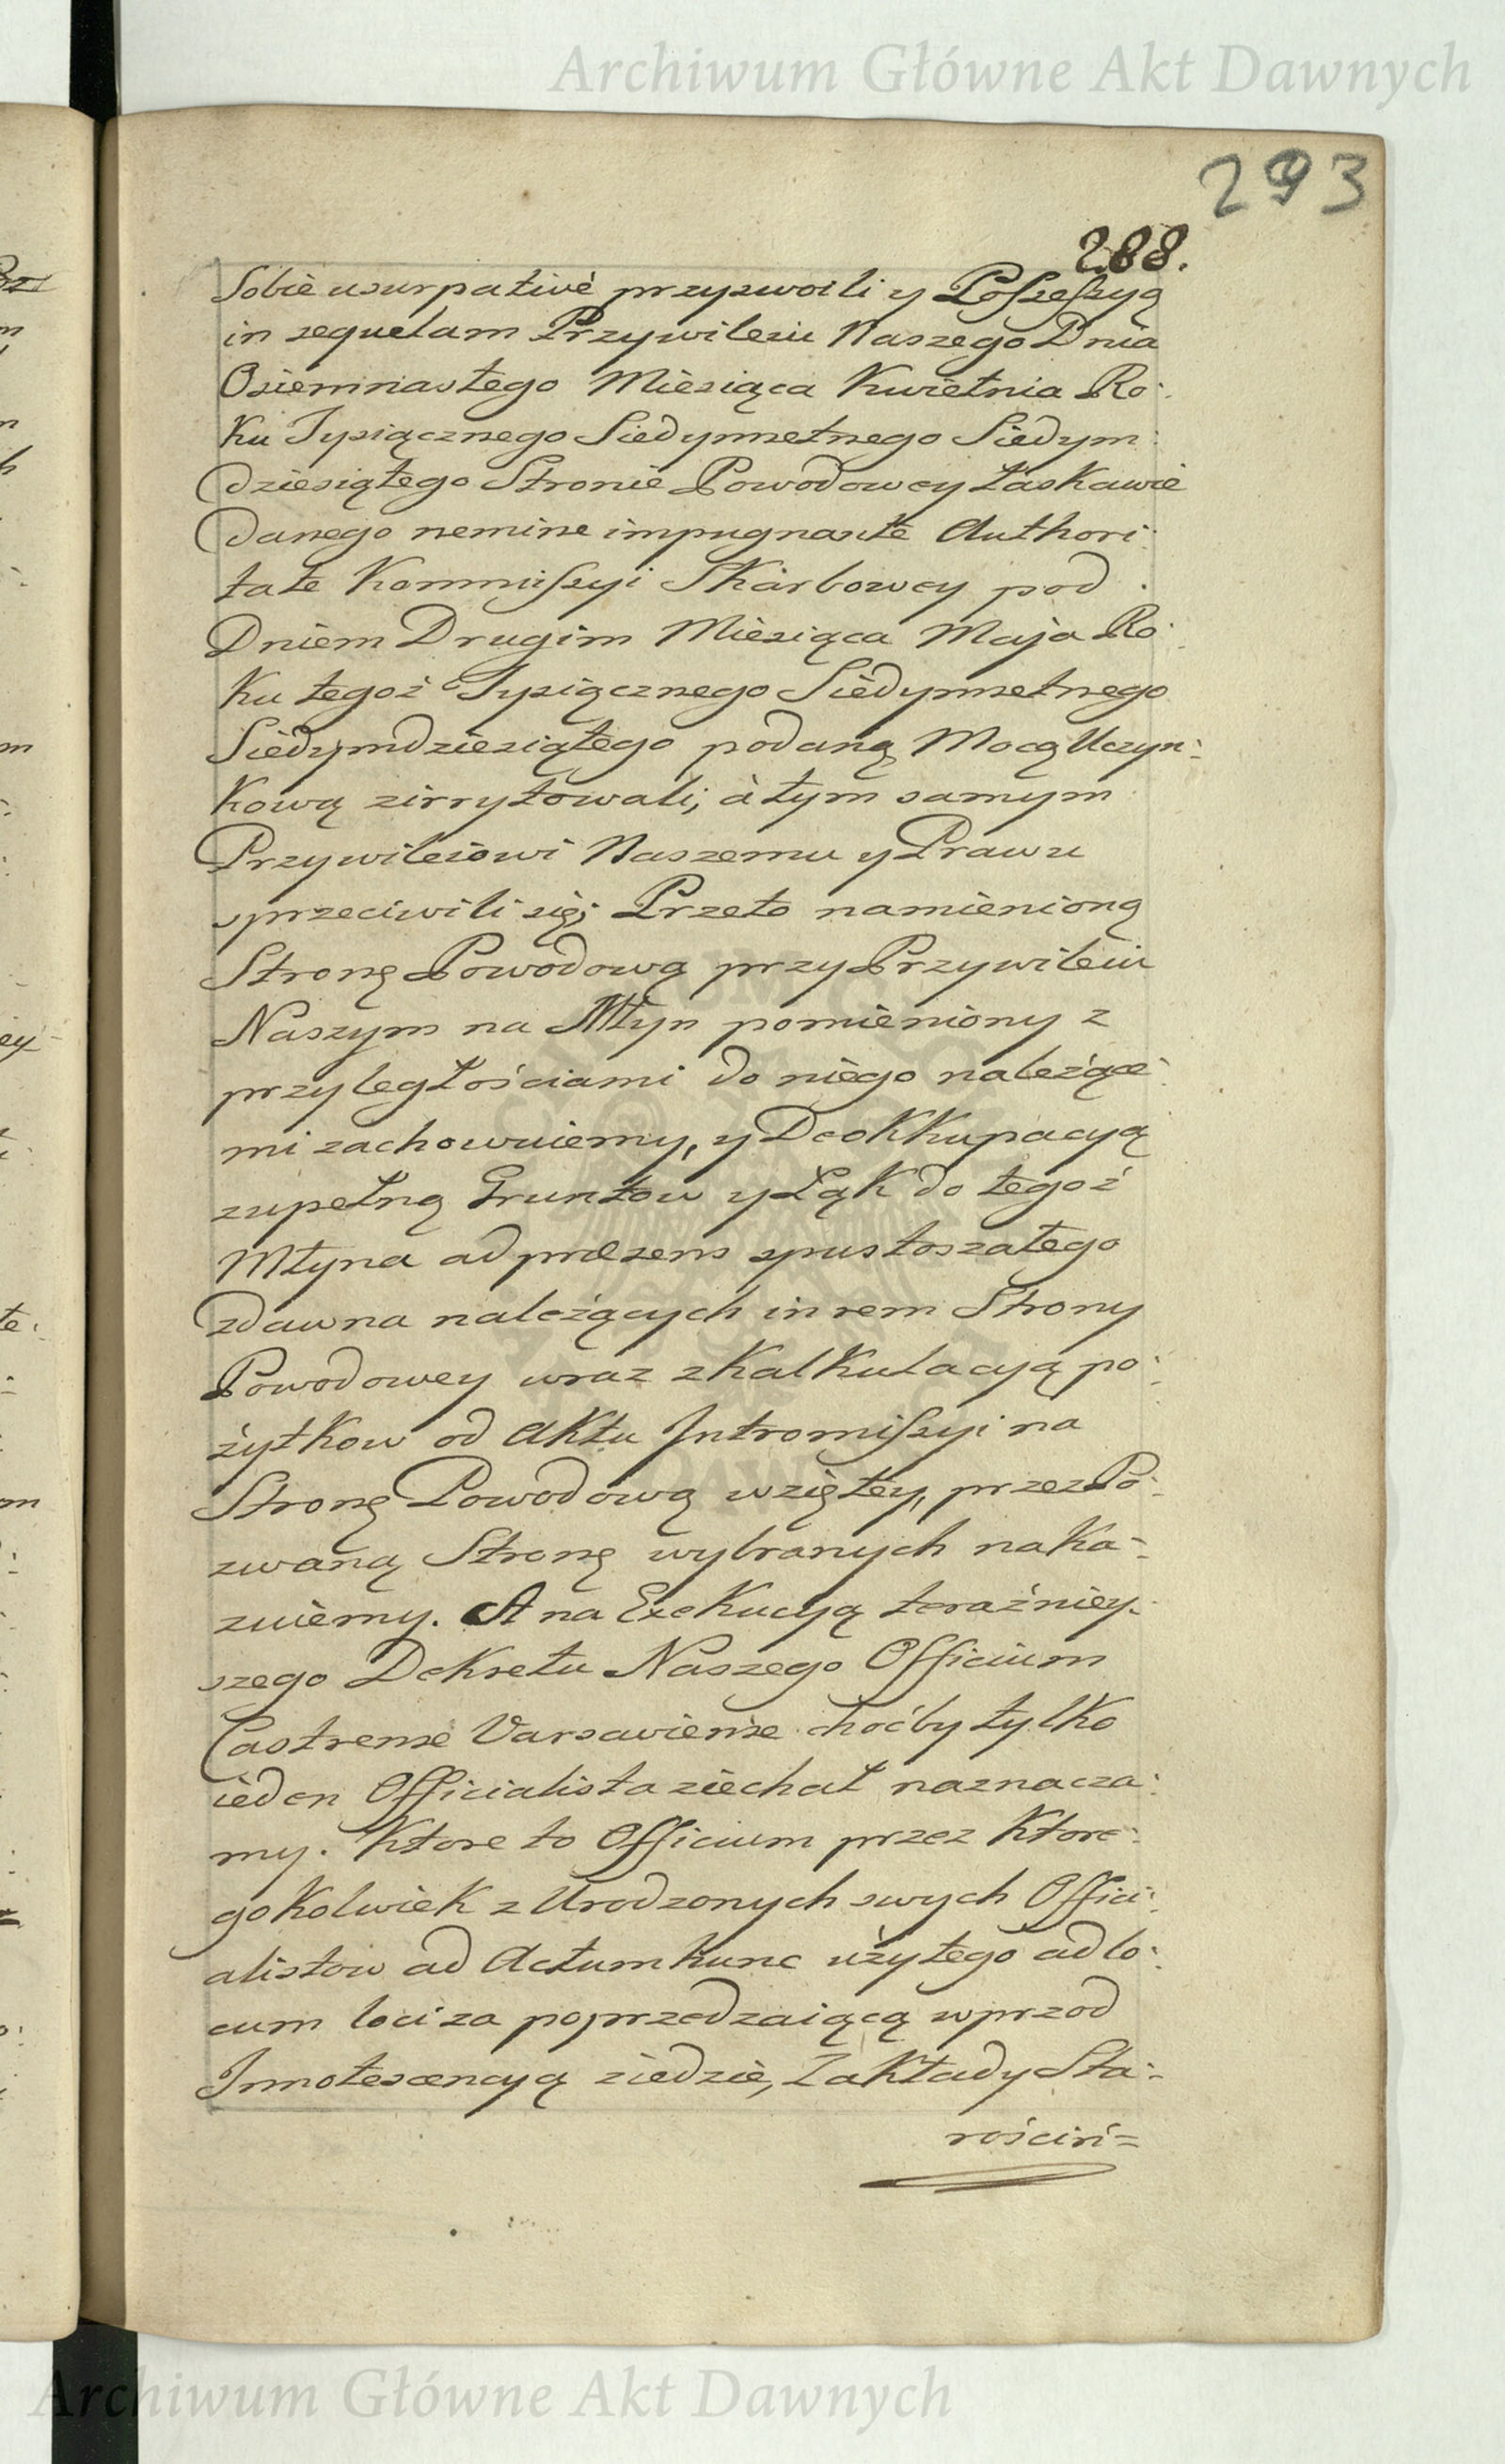 Archiwum Główne Akt Dawnych
293
288.
Sobie usurpativè przyswoili y Possessyą
in sequelam Przywileiu Naszego Dnia
Osiemnastego Miesiąca Kwietnia Ro-
ku Tysiącznego Siedymsetnego Siedym-
dziesiątego Stronie Powodowey łaskawie
danego nemine impugnante Authori-
tate Kommissyi Skarbowey pod
Dniem Drugim Miesiąca Maja Ro-
ku tegoż Tysiącznego Siedymsetnego
Siedymdziesiątego podaną Mocą Uczyn-
kową zirrytowali; à tym samym
Przywileiowi Naszemu y Prawu
sprzeciwili się; Przeto namienioną
Stronę Powodową przy Przywileiu
Naszym na Młyn pomieniony z
przyległościami do niego należące-
mi zachowuiemy, y Deokkupacyą
zupełną Gruntow y Łąk do tegoż
Młyna ad præsens spustoszałego
zdawna należących in rem Strony
Powodowey wraz z Kalkulacyą po-
żytkow od Aktu Intromissyi na
Stronę Powodową wziętey, przez Po-
zwaną Stronę wybranych naka-
zuiemy. A na Exekucyą teraźniey-
szego Dekretu Naszego Officium
Castrense Varsaviense choćby tylko
ieden Officialista ziechał naznacza-
my. Ktore to Officium przez ktore-
gokolwiek z Urodzonych swych Offici-
alistow ad Actum hunc użytego ad lo-
cum loci za poprzedzaiącą wprzod
Innotescencyą ziedzie, Zakłady Sta-
rościń=
Archiwum Główne Akt Dawnych